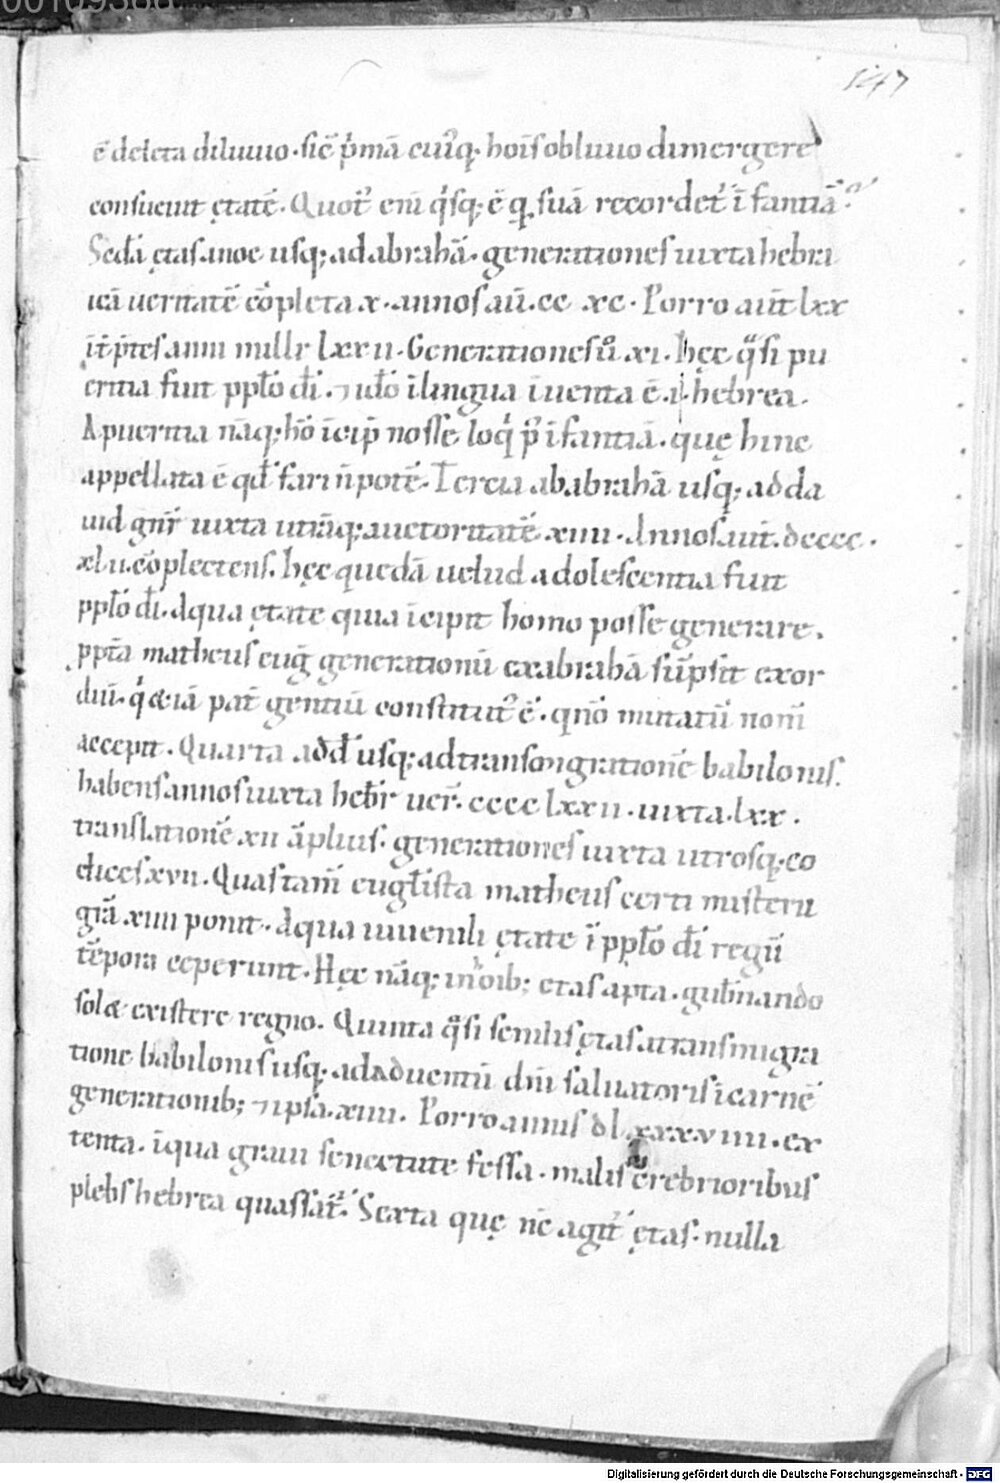 00109388
147
ē deleta diluuio. sic̄ p̍mā cuiq; hoīs obliuio dimergere
consueuit ętatē. Quot᷑ enī q̍sq; ē q suā recordet᷑ īfantiā?
Sedā ętas anoe usq; ad abrahā. generationes iuxta hebra
icā ueritatē cōpleta x. annos aū. cc xc. Porro aūt lxx
īt̄p̄tes anni mille lxxii. Generationes ů. xi. hęc q̄si pu
eritia fuit pplō dī. ⁊ idō ī lingua īuenta ē. i. hebrea.
A pueritia nāq; hō īcip̄ nosse loq̍ p̄ īfantiā. quę hinc
appellata ē qd̄ fari n̄ potē. Tercia ab abrahā usq; ad da
uid gn̄r iuxta utrāq; auctoritatē xiiii. Annos aūt. dcccc.
xlii. cōplectens. hęc quedā uelud adolescentia fuit
pplō dī. A qua ętate quia īcipit homo posse generare.
ppt̄a matheus eug̅ generationū ex abrahā sūpsit exor
diū. q̍ &iā pat̄ gentiū constitut᷑ ē. qn̄o mutatū nom̄
accepit. Quarta a dd̄ usq; ad transmigrationē babilonis.
habens annos iuxta heb̄r uer̄. cccc lxxii. iuxta. lxx.
translationē xii āplius. generationes iuxta utrosq; co
dices xvii. Quas tam̄ eugl̄ista matheus certi misterii
grā xiiii ponit. A qua iuuenili ętate ī pplō dī regū
tēpora ceperunt. Hęc nāq; in oīb; etas apta. gub̄nando
sol& existere regno. Quinta q̄si senilis ętas a transmigra
tione babilonis usq; ad aduentū dnī saluatoris ī carnē
generationib; ⁊ ipsa. xiiii. Porro annis dlxxxviiii. ex
tenta. ī qua graui senectute fessa. malis crebrioribus
plebs hebrea quassat᷑. Sexta quę nc̄ agit᷑ ętas. nulla
Digitalisierung gefördert durch die Deutsche Forschungsgemeinschaft - DFG